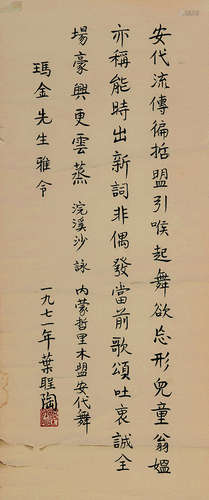 安代流傳徧哲盟引喉起舞欲忘形兒童翁媼
亦稱能時出新詞非偶發當前歌頌吐衷誠全
場豪興更雲蒸 浣溪沙 詠 內蒙哲里木盟安代舞
瑪金先生雅令
一九七一年葉聖陶